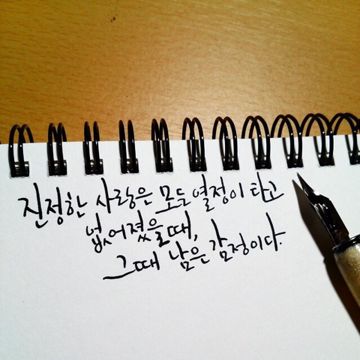 진정한 사랑은 모두 열정이 타고
없어졌을때,
그때 남은 감정이다.